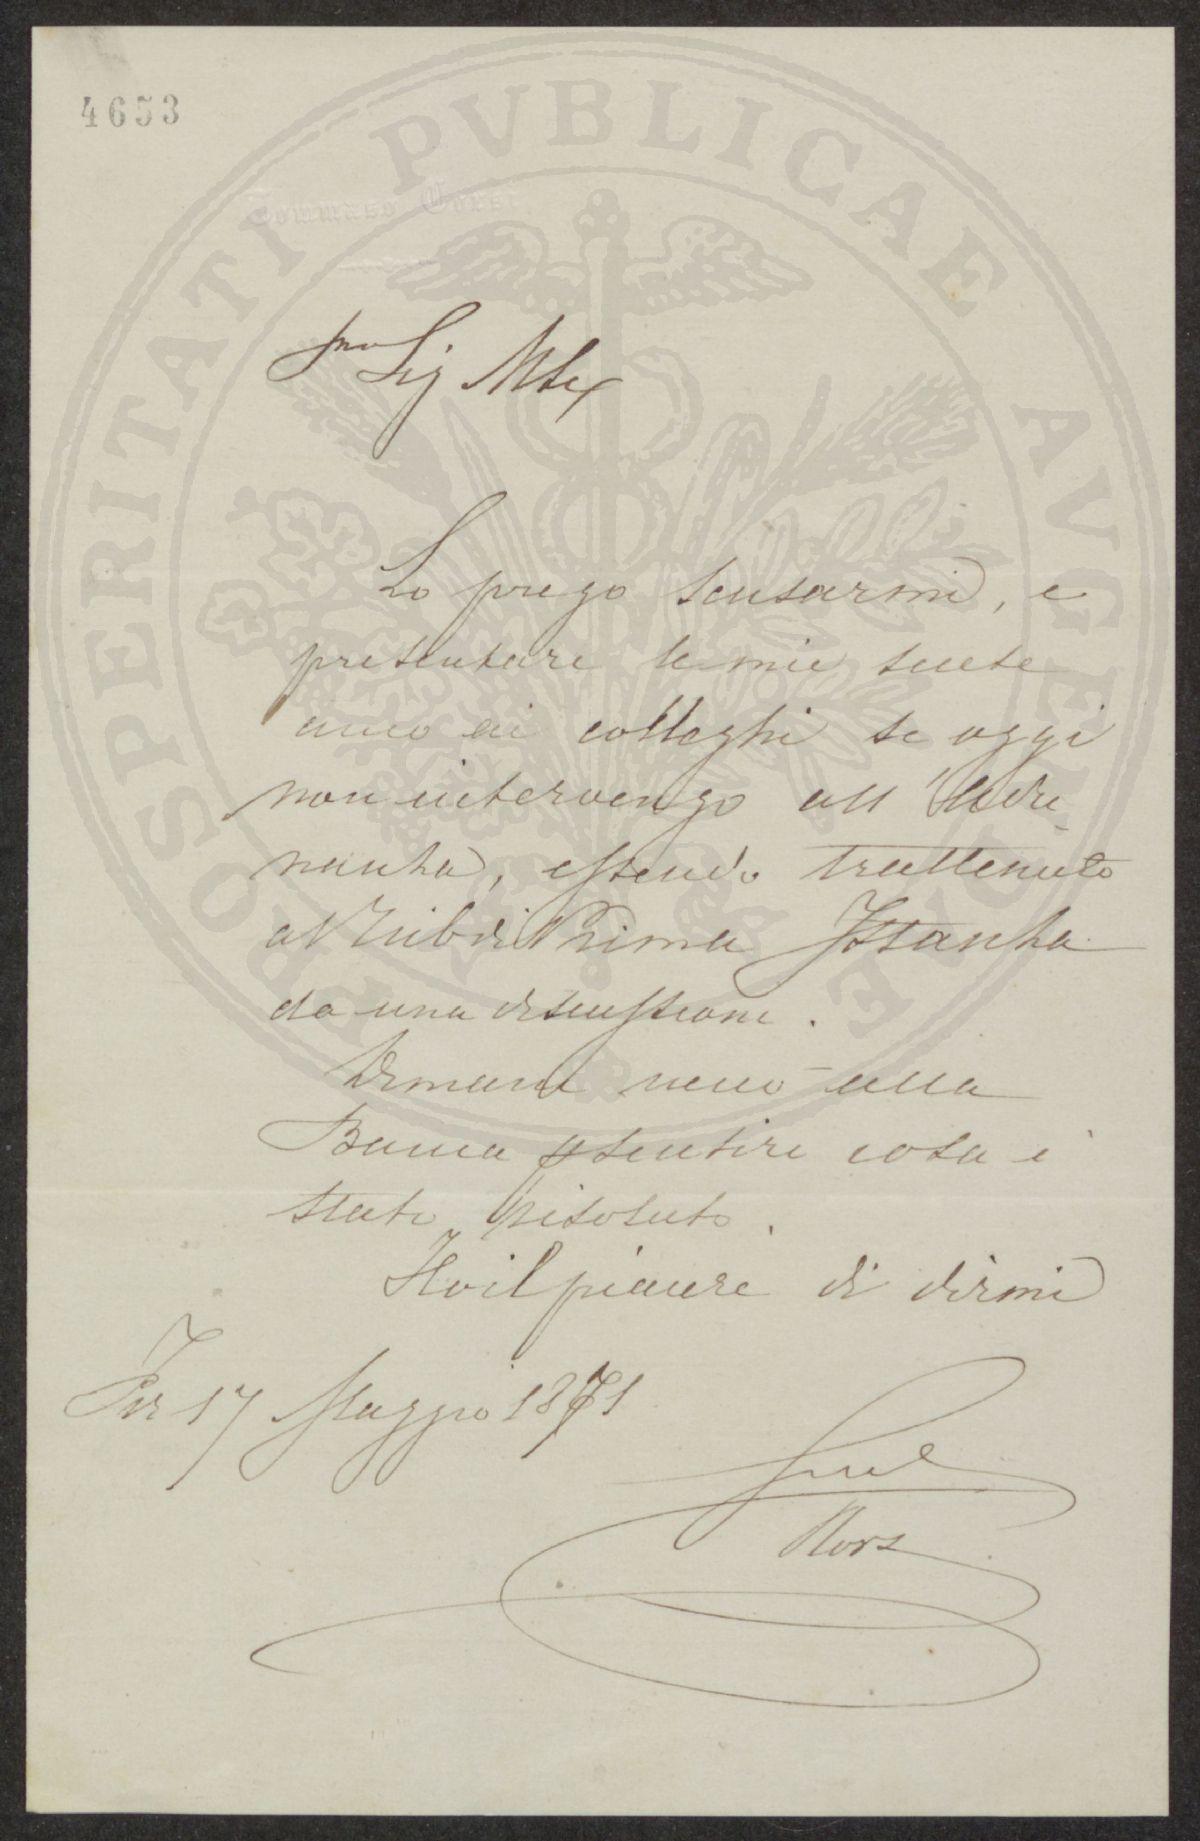 4653
PROSPERITATI PVBLICAE AVGENDAE
Tommaso Corsi
Sig Mse
Lo prego scusarmi, e
presentare le mie scuse
anco ai colleghi se oggi
non intervengo all'Adu-
nanza, essendo trattenuto
al Trib di Prima Istanza
da una discussione.
Dimani verrò alla
Banca p sentire cosa è
stato risoluto.
Ho il piacere di dirmi
17 Maggio 1871